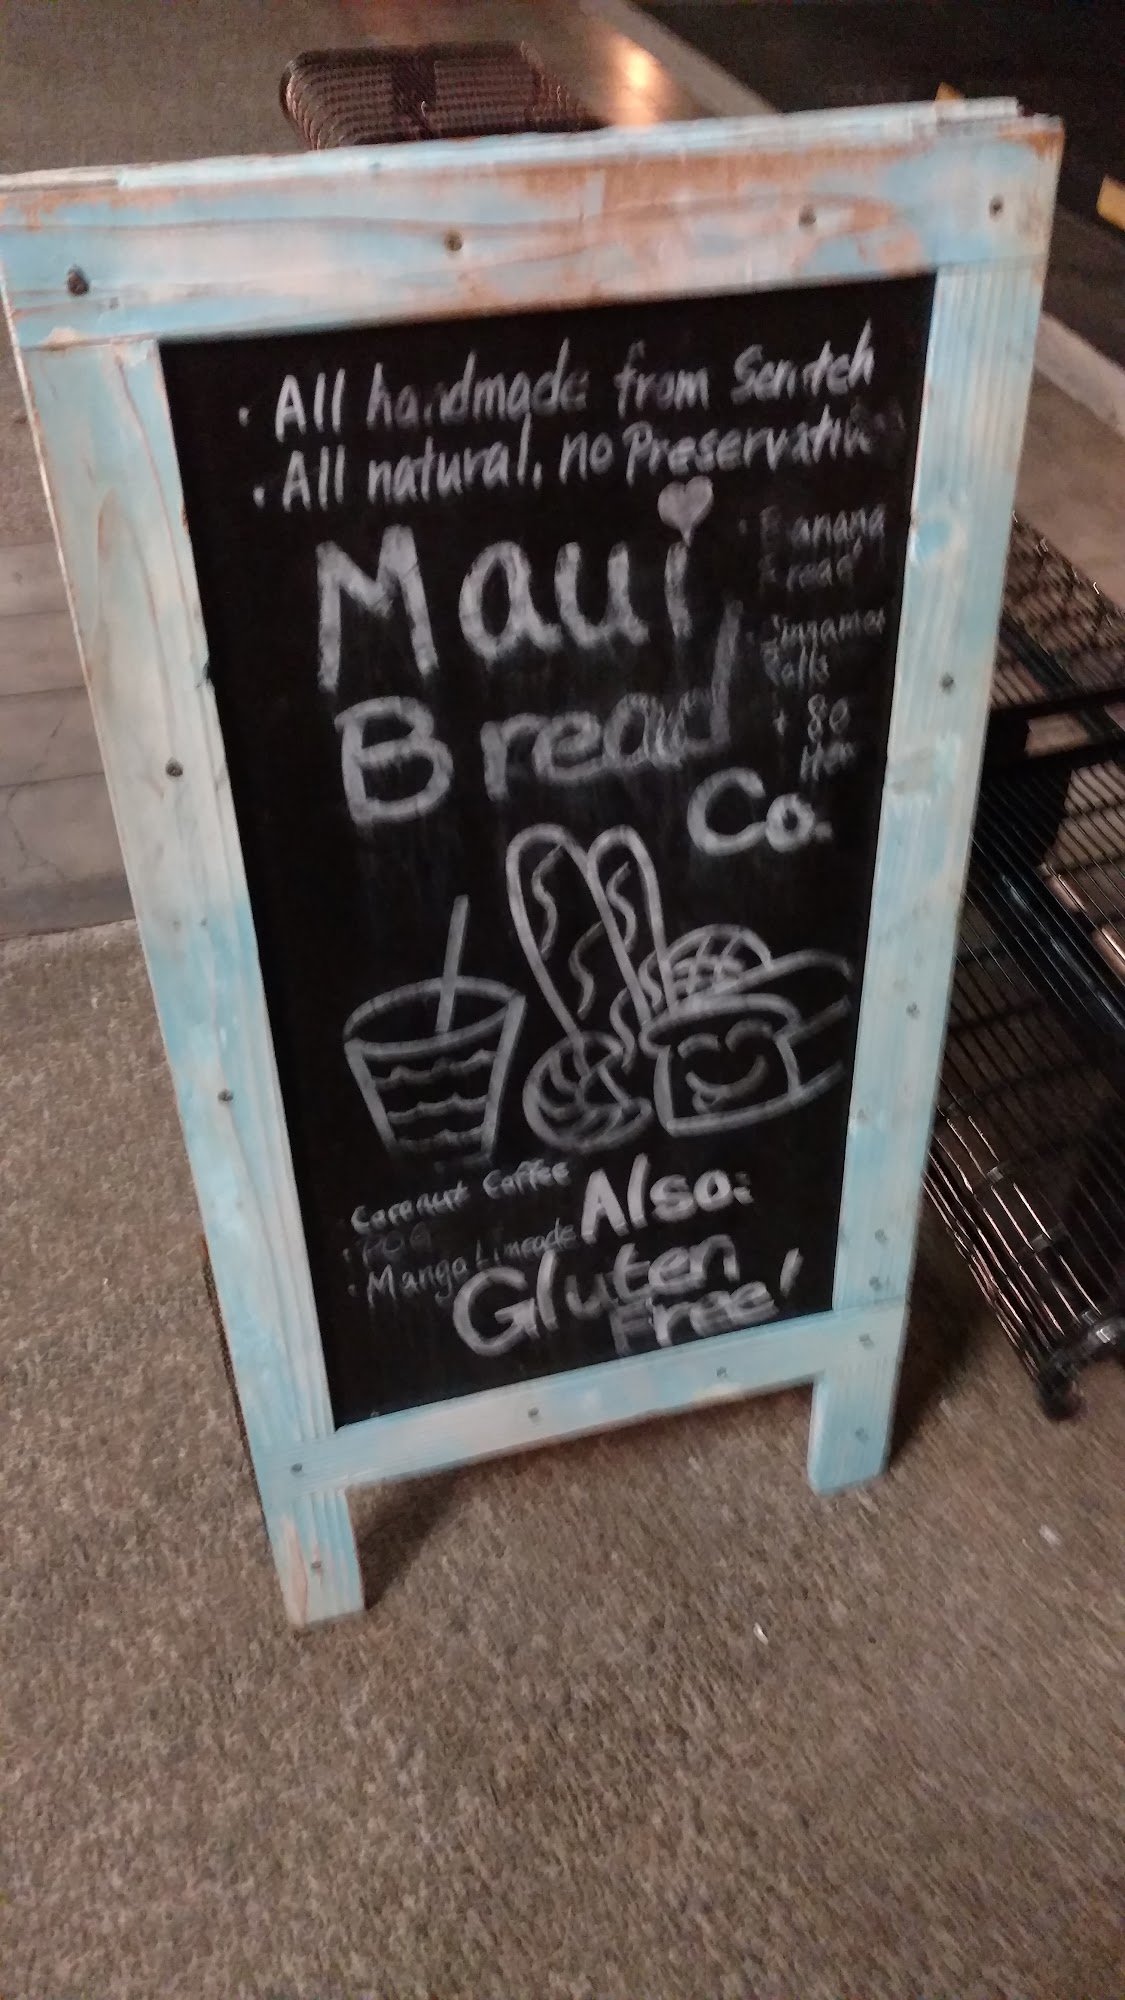 · All handmade from Scratch
· All natural, no Preservatives
Maui
Bread
Co.
· Banana
Bread
· Cinnamon
Rolls
+ 80
Items
Coconut Coffee
· POG
· Mango Limeade
Also:
Gluten
Free!